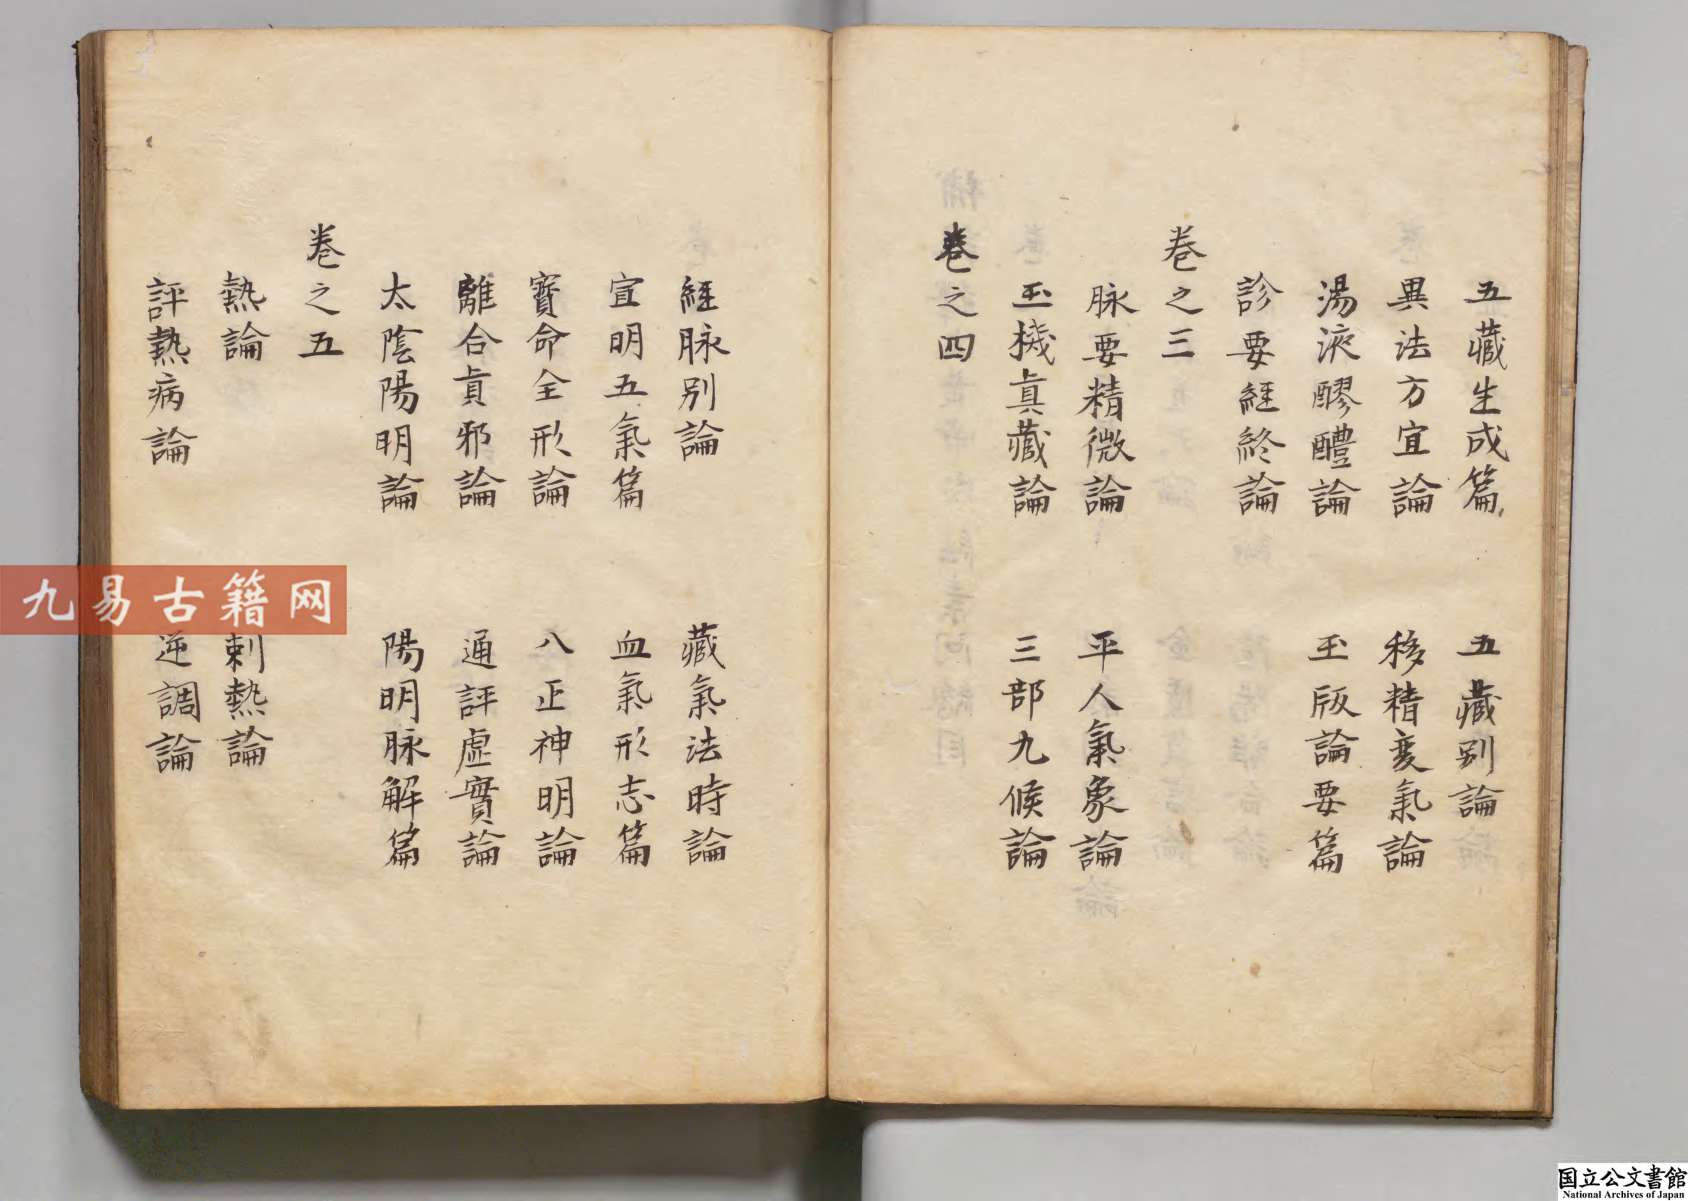 五藏生成篇　五藏别論
異法方宜論　移精変氣論
湯液醪醴論　玉版論要篇
診要経終論
巻之三
脉要精微論　平人氣象論
玉機真藏論　三部九候論
巻之四
経脉别論　藏氣法時論
宣明五氣篇　血氣形志篇
寳命全形論　八正神明論
離合真邪論　通評虚實論
太陰陽明論　陽明脉解篇
巻之五
熱論　刺熱論
評熱病論　逆調論
九易古籍网
国立公文書館
National Archives of Japan